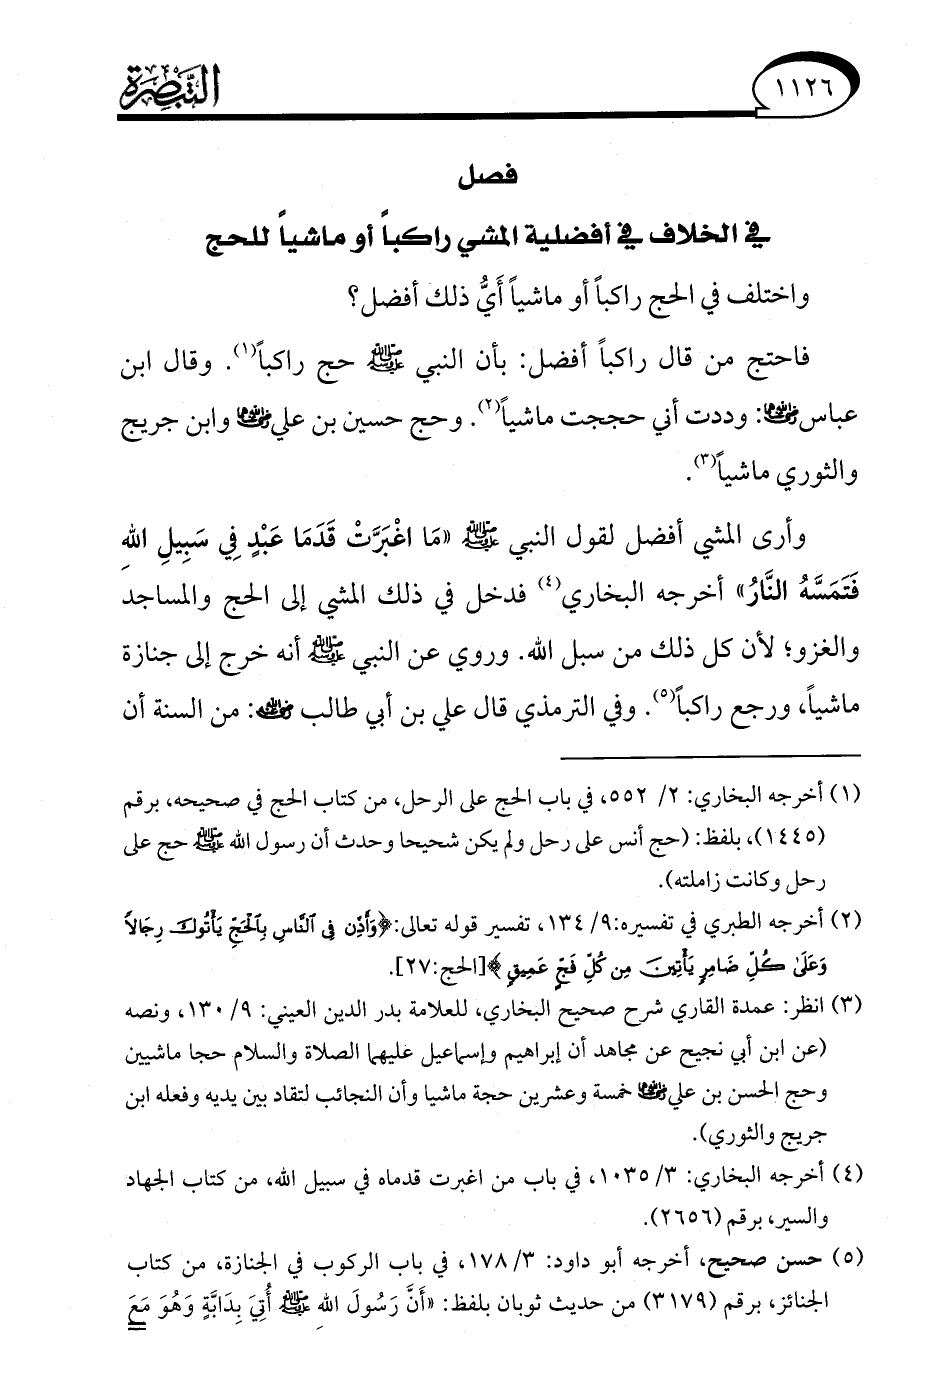 ١١٢٦
التبصرة
فصل
في الخلاف في أفضلية المشي راكباً أو ماشياً للحج
واختلف في الحج راكباً أو ماشياً أَيُّ ذلك أفضل؟
فاحتج من قال راكباً أفضل: بأن النبي ﷺ حج راكباً(١). وقال ابن
عباس رضي الله عنهما: وددت أني حججت ماشياً(٢). وحج حسين بن علي رضي الله عنهما وابن جريج
والثوري ماشياً(٣).
وأرى المشي أفضل لقول النبي ﷺ «مَا اغْبَرَّتْ قَدَمَا عَبْدٍ فِي سَبِيلِ اللهِ
فَتَمَسَّهُ النَّارُ» أخرجه البخاري(٤) فدخل في ذلك المشي إلى الحج والمساجد
والغزو؛ لأن كل ذلك من سبل الله. وروي عن النبي ﷺ أنه خرج إلى جنازة
ماشياً، ورجع راكباً(٥). وفي الترمذي قال علي بن أبي طالب رضي الله عنه: من السنة أن
(١) أخرجه البخاري: ٢/ ٥٥٢، في باب الحج على الرحل، من كتاب الحج في صحيحه، برقم
(١٤٤٥)، بلفظ: (حج أنس على رحل ولم يكن شحيحا وحدث أن رسول الله ﷺ حج على
رحل وكانت زاملته).
(٢) أخرجه الطبري في تفسيره: ٩/ ١٣٤، تفسير قوله تعالى: ﴿وَأَذِّن فِى ٱلنَّاسِ بِٱلْحَجِّ يَأْتُوكَ رِجَالًا
وَعَلَىٰ كُلِّ ضَامِرٍ يَأْتِينَ مِن كُلِّ فَجٍّ عَمِيقٍ﴾ [الحج: ٢٧].
(٣) انظر: عمدة القاري شرح صحيح البخاري، للعلامة بدر الدين العيني: ٩/ ١٣٠، ونصه
(عن ابن أبي نجيح عن مجاهد أن إبراهيم وإسماعيل عليهما الصلاة والسلام حجا ماشيين
وحج الحسن بن علي رضي الله عنهما خمسة وعشرين حجة ماشيا وأن النجائب لتقاد بين يديه وفعله ابن
جريج والثوري).
(٤) أخرجه البخاري: ٣/ ١٠٣٥، في باب من اغبرت قدماه في سبيل الله، من كتاب الجهاد
والسير، برقم (٢٦٥٦).
(٥) حسن صحيح، أخرجه أبو داود: ٣/ ١٧٨، في باب الركوب في الجنازة، من كتاب
الجنائز، برقم (٣١٧٩) من حديث ثوبان بلفظ: «أَنَّ رَسُولَ اللهِ ﷺ أُتِيَ بِدَابَّةٍ وَهُوَ مَعَ